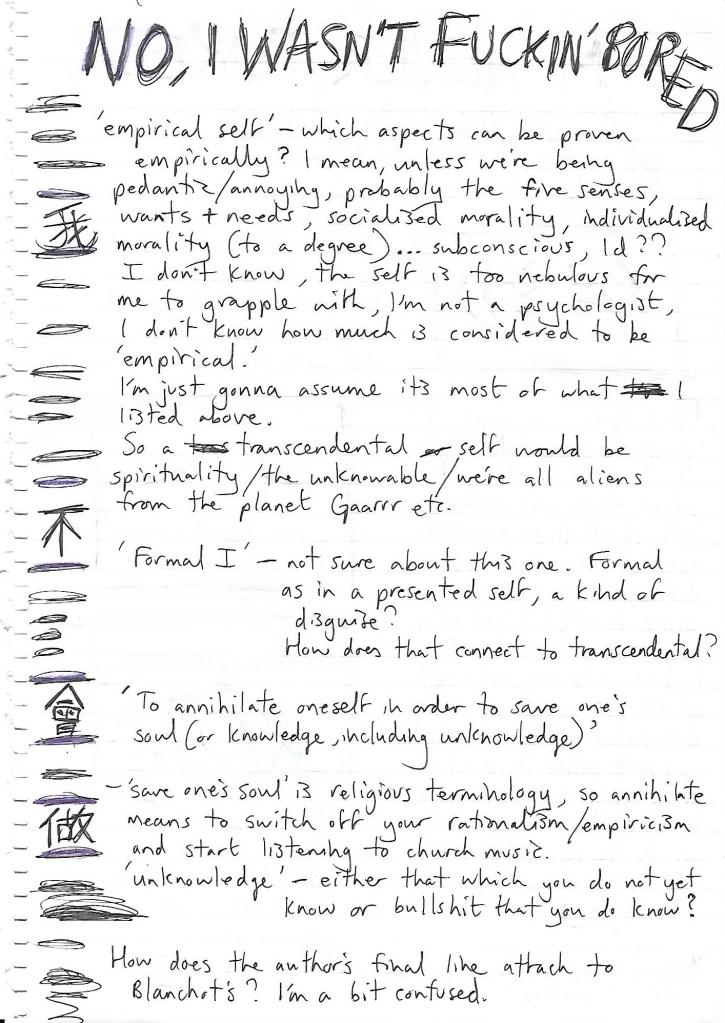 NO, I WASN'T FUCKIN' BORED
'empirical self' – which aspects can be proven
empirically? I mean, unless we're being
pedantic/annoying, probably the five senses,
wants + needs, socialised morality, individualised
morality (to a degree)... subconscious, Id??
I don't know, the self is too nebulous for
me to grapple with, I'm not a psychologist,
I don't know how much is considered to be
'empirical.'
I'm just gonna assume its most of what I
listed above.
So a transcendental self would be
spirituality/the unknowable/we're all aliens
from the planet Gaarrr etc.
'Formal I' – not sure about this one. Formal
as in a presented self, a kind of
disguise?
How does that connect to transcendental?
'To annihilate oneself in order to save one's
soul (or knowledge, including unknowledge)'
– 'save one's soul' is religious terminology, so annihilate
means to switch off your rationalism/empiricism
and start listening to church music.
'unknowledge' – either that which you do not yet
know or bullshit that you do know?
How does the author's final line attach to
Blanchot's? I'm a bit confused.
我
不
會
做